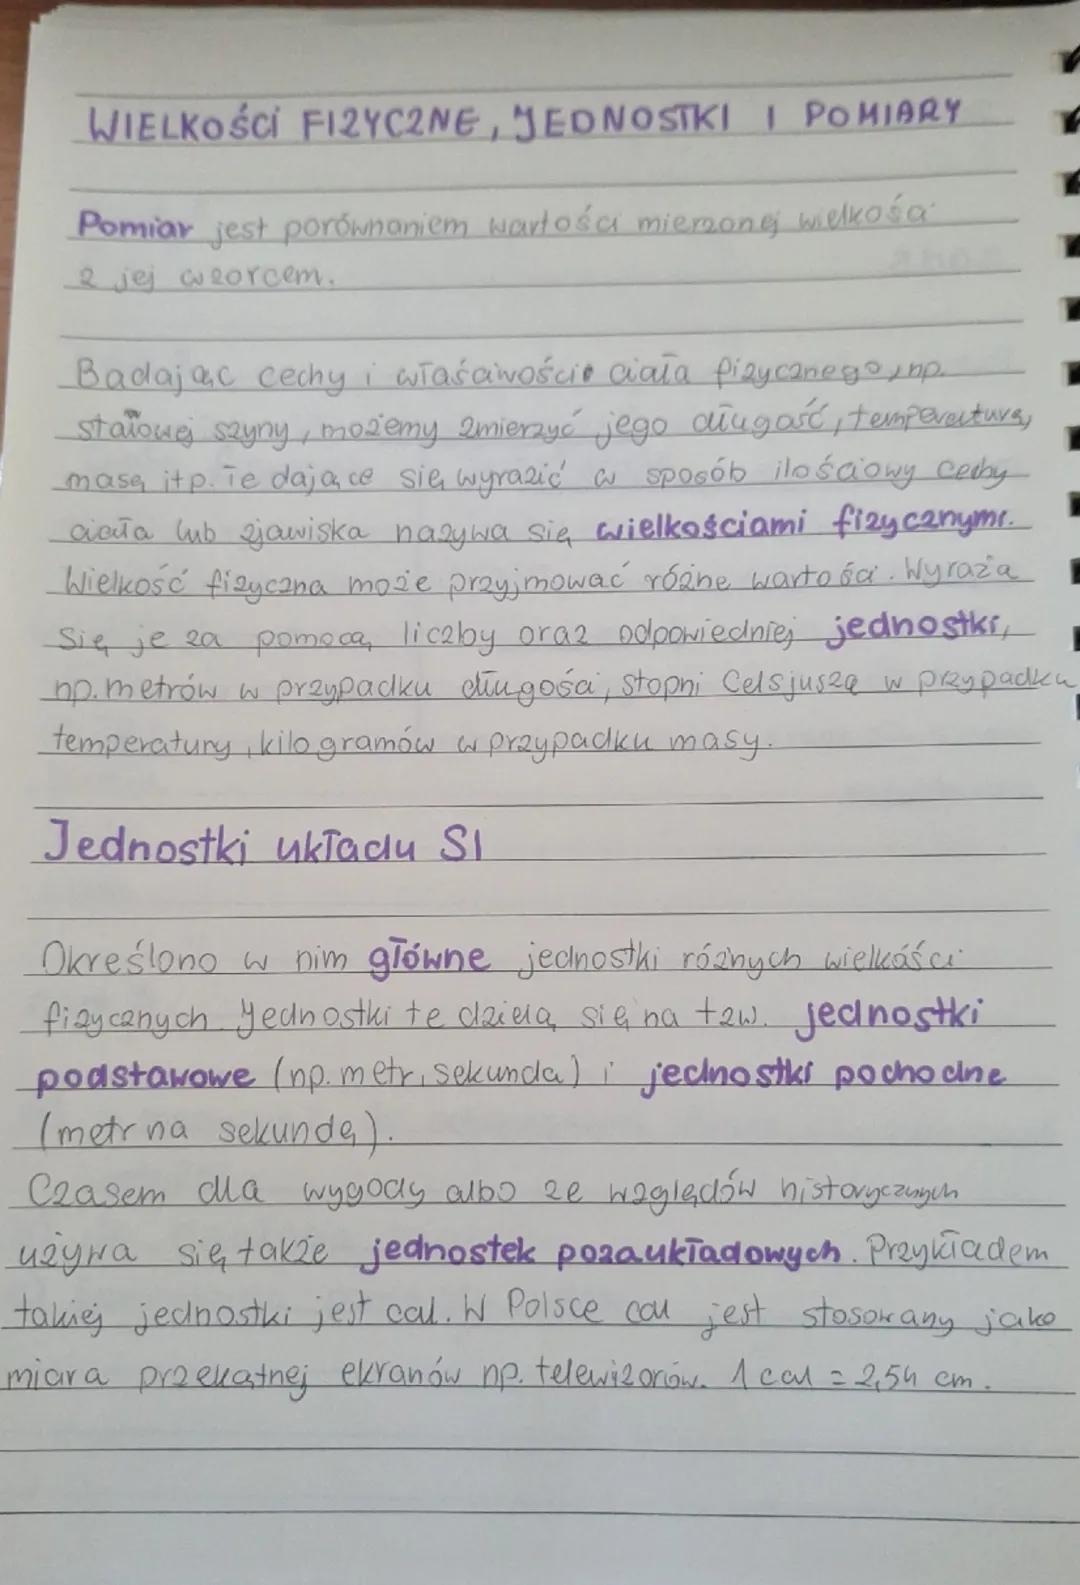 WIELKOŚCI FIZYCZNE, JEDNOSTKI I POMIARY
Pomiar jest porównaniem wartości mierzonej wielkości
z jej wzorcem.
Badając cechy i właściwości ciała fizycznego, np.
stalowej szyny, możemy zmierzyć jego długość, temperaturę,
masę itp. Te dające się wyrazić w sposób ilościowy cechy
ciała lub zjawiska nazywa się wielkościami fizycznymi.
Wielkość fizyczna może przyjmować różne wartości. Wyraża
się je za pomocą liczby oraz odpowiedniej jednostki,
np. metrów w przypadku długości, stopni Celsjusza w przypadku
temperatury, kilogramów w przypadku masy.
Jednostki układu SI
Określono w nim główne jednostki różnych wielkości
fizycznych. Jednostki te dzielą się na tzw. jednostki
podstawowe (np. metr, sekunda) i jednostki pochodne
(metr na sekundę).
Czasem dla wygody albo ze względów historycznych
używa się także jednostek pozaukładowych. Przykładem
takiej jednostki jest cal. W Polsce cal jest stosowany jako
miara przekątnej ekranów np. telewizorów. 1 cal = 2,54 cm.